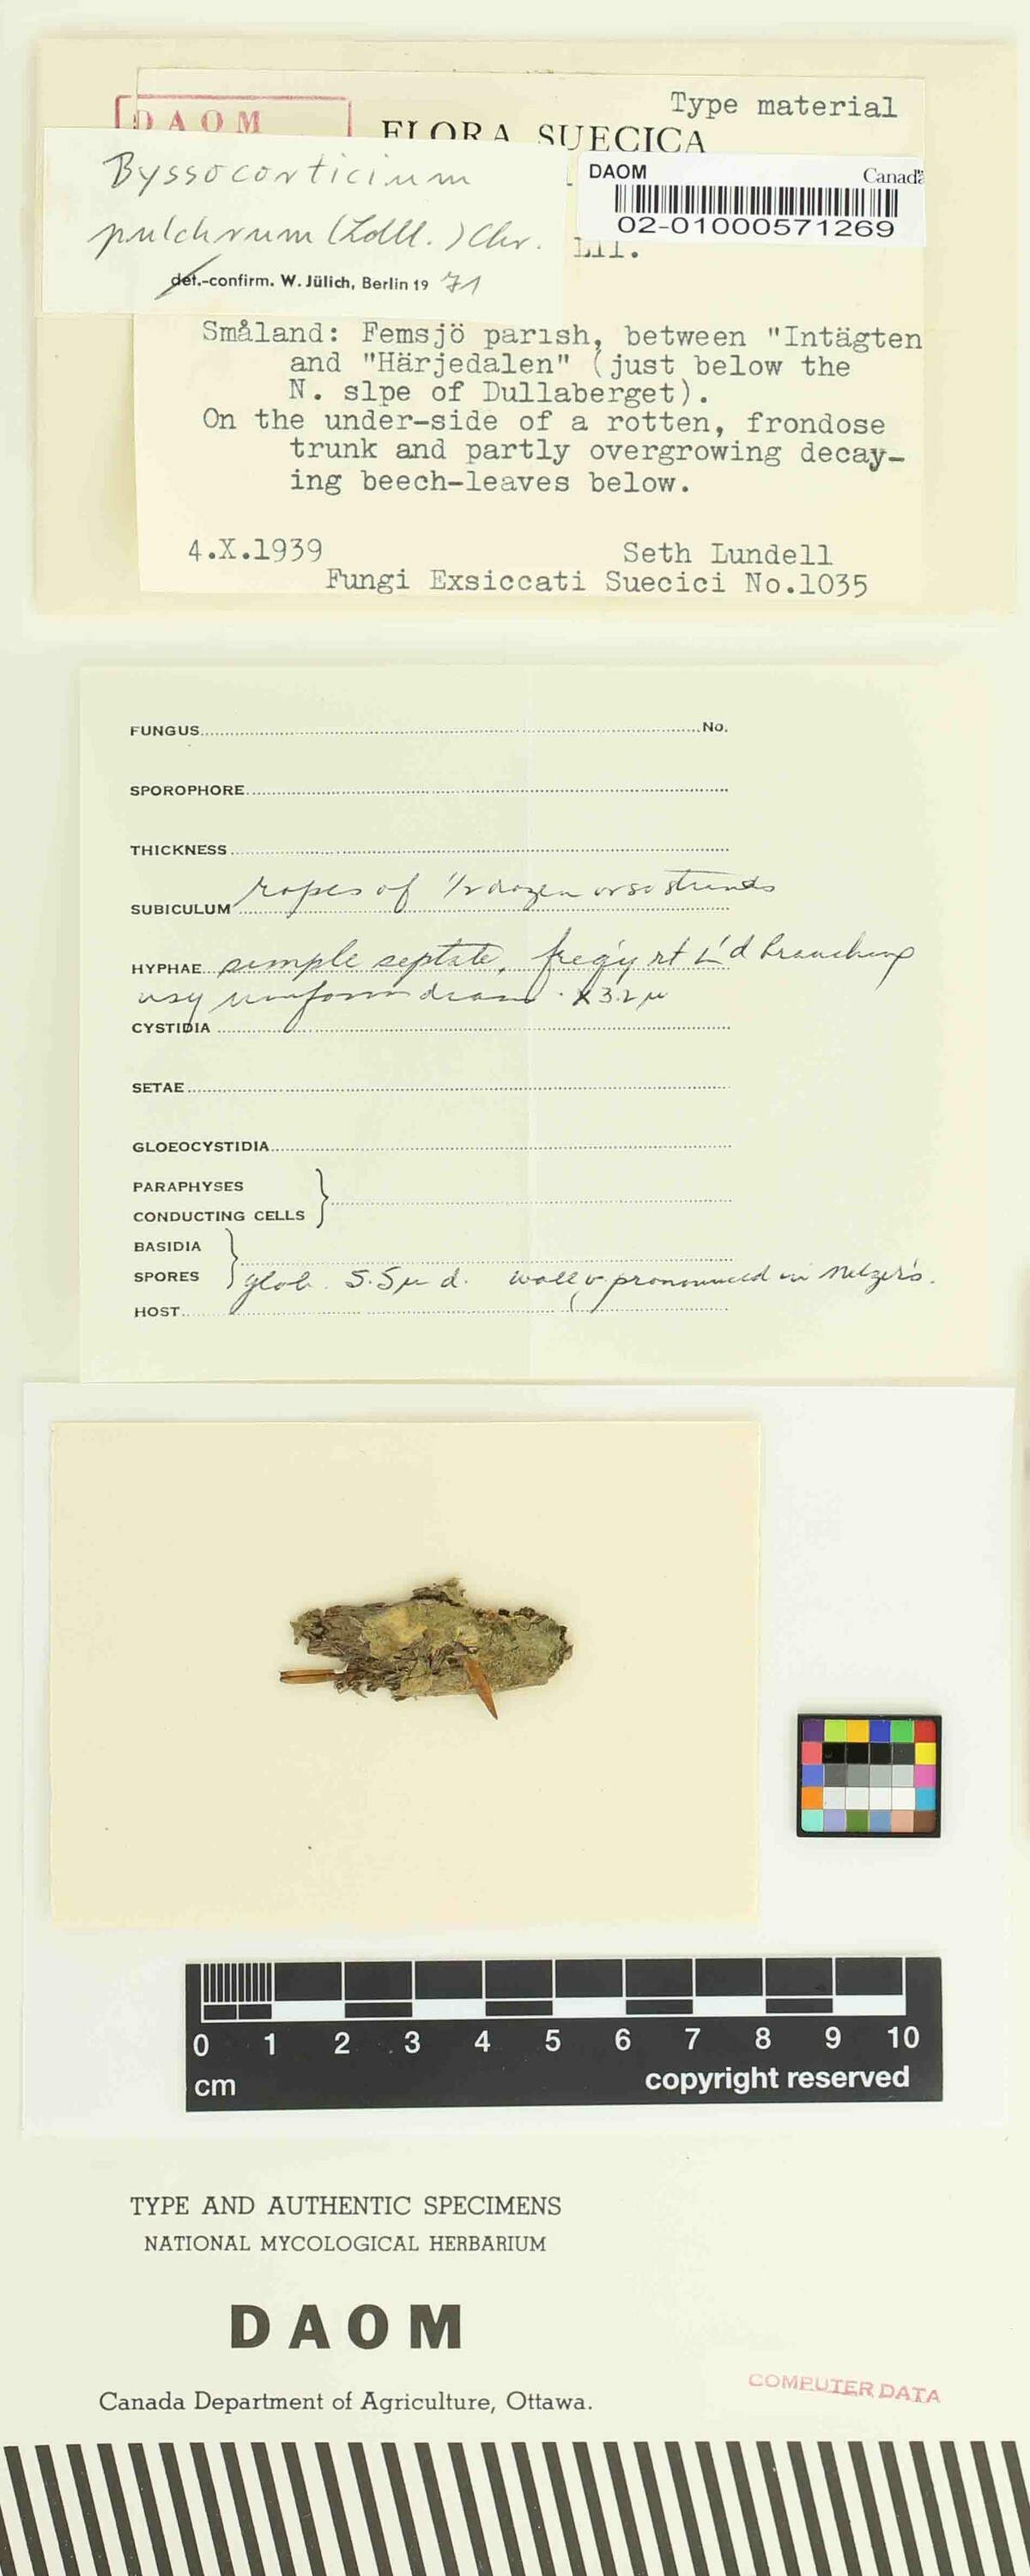 Type material
DAOM
FLORA SUECICA
Byssocorticium
pulchrum (Ldll.) Chr.
det.-confirm. W. Jülich, Berlin 19 71
DAOM Canada
02-01000571269
Småland: Femsjö parish, between "Intägten
and "Härjedalen" (just below the
N. slpe of Dullaberget).
On the under-side of a rotten, frondose
trunk and partly overgrowing decay-
ing beech-leaves below.
4.X.1939 Seth Lundell
Fungi Exsiccati Suecici No.1035
FUNGUS No.
SPOROPHORE
THICKNESS
SUBICULUM ropes of 1/2 dozen or so strands
HYPHAE simple septate, freq'y rt L'd branching
usy uniform diam. x 3.2 µ
CYSTIDIA
SETAE
GLOEOCYSTIDIA
PARAPHYSES
CONDUCTING CELLS
BASIDIA
SPORES glob. 5.5µ d. wall v pronounced in Melzer's.
HOST
0 1 2 3 4 5 6 7 8 9 10
cm copyright reserved
TYPE AND AUTHENTIC SPECIMENS
NATIONAL MYCOLOGICAL HERBARIUM
DAOM
COMPUTER DATA
Canada Department of Agriculture, Ottawa.